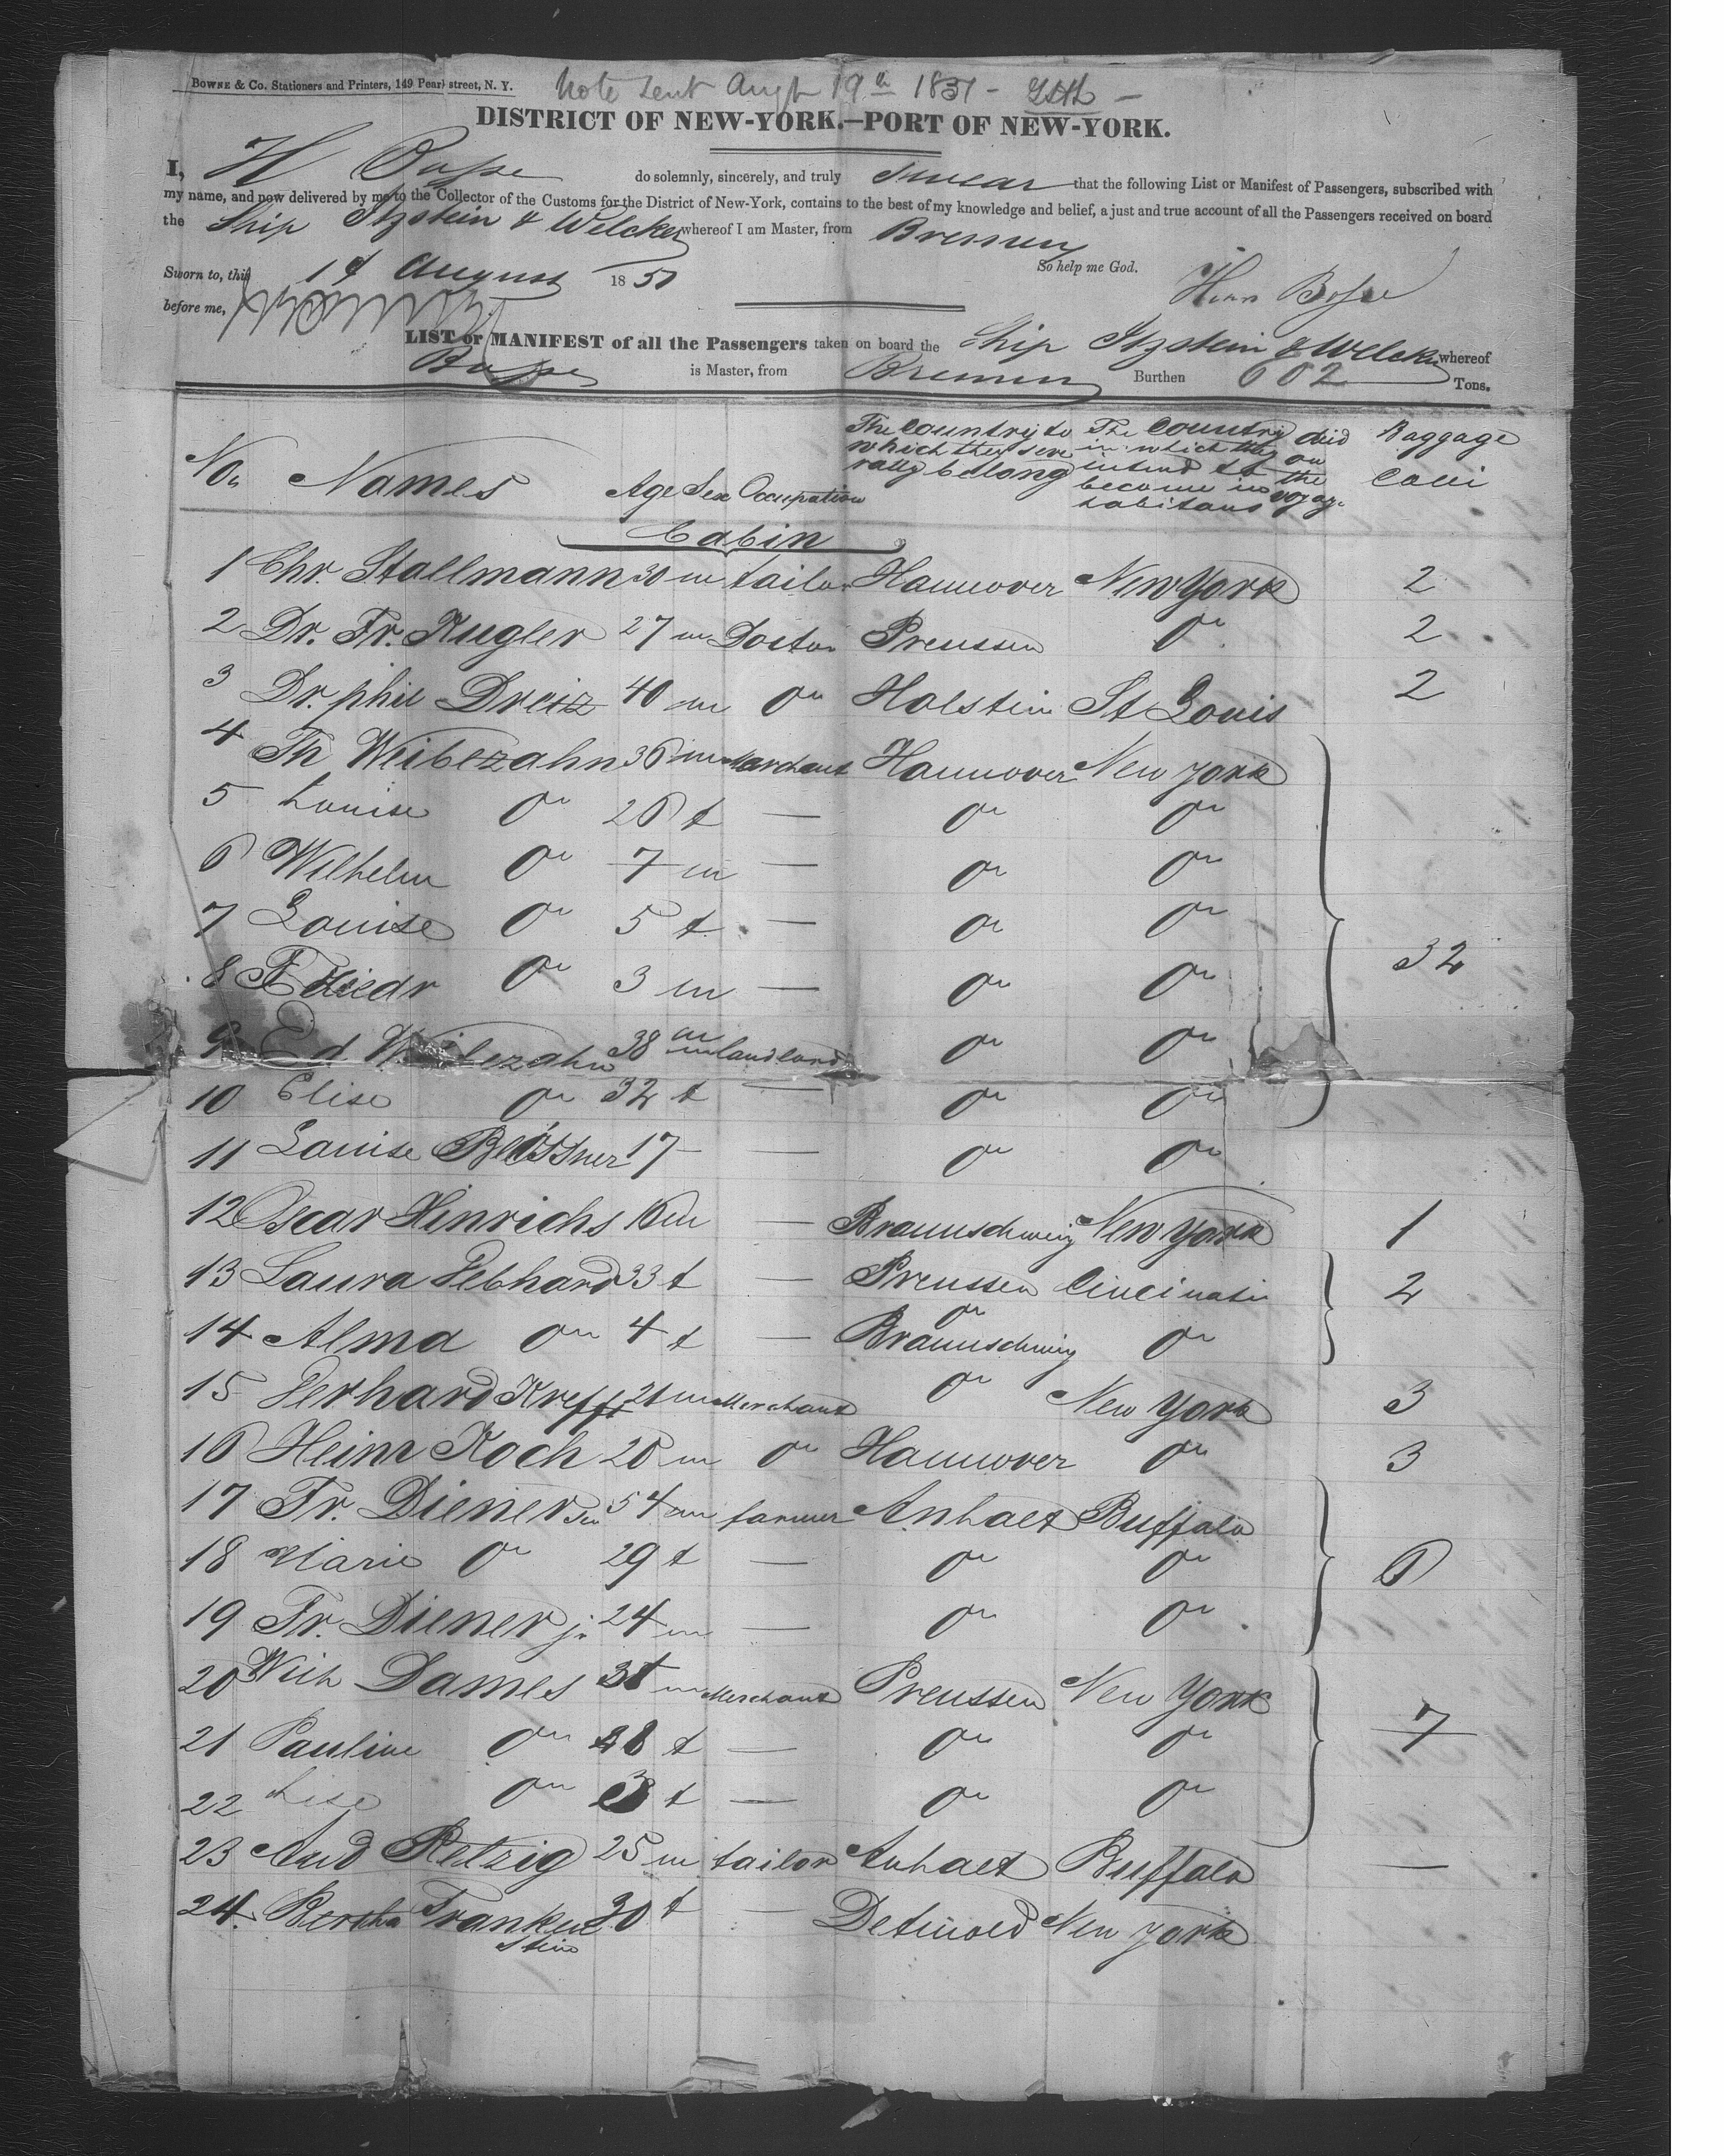 BOWNE & Co. Stationers and Printers, 149 Pearl street, N. Y.
Note sent Augt 19th 1851 –
DISTRICT OF NEW-YORK.—PORT OF NEW-YORK.
I, H Bosse do solemnly, sincerely, and truly swear that the following List or Manifest of Passengers, subscribed with
my name, and now delivered by me to the Collector of the Customs for the District of New-York, contains to the best of my knowledge and belief, a just and true account of all the Passengers received on board
the Ship Itzstein & Welcker whereof I am Master, from Bremen
Sworn to, this 19 August 1851 So help me God.
before me, Bosse
LIST or MANIFEST of all the Passengers taken on board the Ship Itzstein & Welcker whereof
Bosse is Master, from Bremen Burthen 602 Tons.
No. Names Age Sex Occupation The Country to which they severally belong The Country in which they intend to become inhabitans died on the voyage Baggage Colli
Cabin
1 Chr. Stallmann 30 m tailor Hannover New York 2
2 Dr. Fr. Kugler 27 m Doctor Preussen do 2
3 Dr. phil Dreiz 40 m do Holstein St Louis 2
4 Th Weibezahn 36 m Merchant Hannover New York
5 Louise do 26 f — do do
6 Wilhelm do 7 m — do do
7 Louise do 5 f — do do
8 Friedr do 3 m — do do 32
9 Ed Weibezahn 38 m landlord do do
10 Elise do 32 f — do do
11 Louise Blössner 17 — do do
12 Oscar Hinrichs 16 m — Braunschweig New York 1
13 Laura Gebhard 33 f — Preussen Cincinati 2
14 Alma do 4 f — do Braunschweig do
15 Gerhard Krefft 21 m Merchant do New York 3
16 Heinr Koch 26 m do Hannover do 3
17 Fr. Diener sen 54 m farmer Anhalt Buffalo
18 Marie do 29 f — do do 6
19 Fr. Diener jr 24 m — do do
20 Wilh Dames m Merchant Preussen New York
21 Pauline do f — do do 7
22 Lise do 3 f — do do
23 Aud Retzig 25 m tailor Anhalt Buffalo —
24. Bertha Frankenstein 30 f — Detmold New York